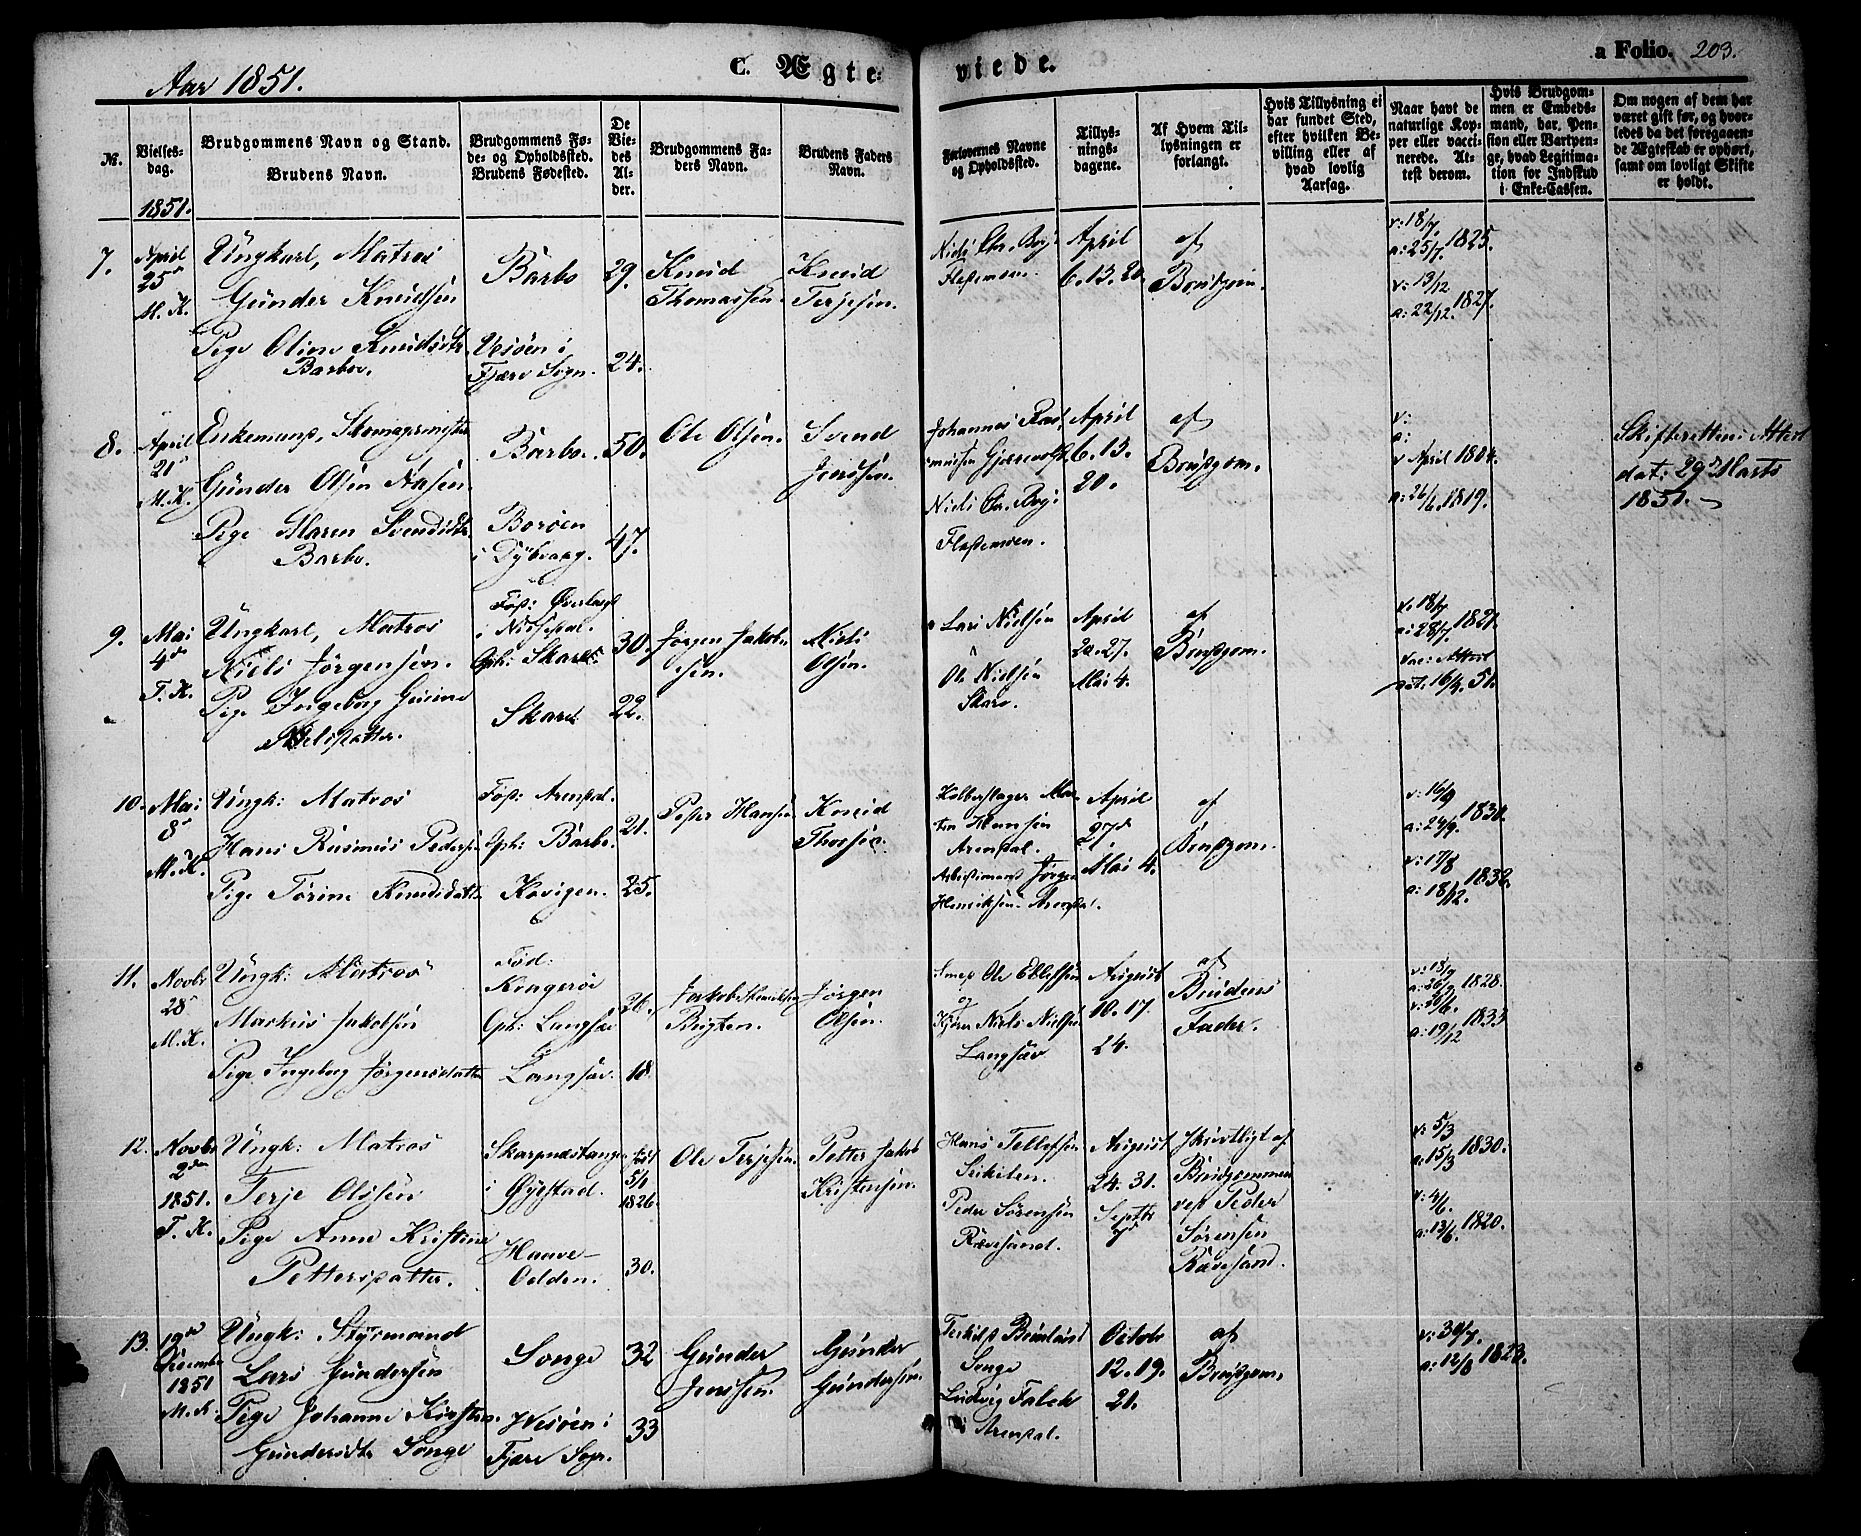 Aar 1851.
C. Ægte-
viede.
a Folio. 203.
№.
Vielses-
dag.
1851.
Brudgommens Navn og Stand.
Brudens Navn.
Brudgommens Fø-
de- og Opholdssted.
Brudens Fødested.
De
Vie-
des
Al-
der.
Brudgommens Fa-
ders Navn.
Brudens Faders
Navn.
Forlovernes Navne
og Opholdssted.
Tillys-
nings-
dagene.
Af Hvem Til-
lysningen er
forlangt.
Hvis Tillysning ei
har fundet Sted,
efter hvilken Be-
villing eller af
hvad lovlig
Aarsag.
Naar havt de
naturlige Kop-
per eller vacci-
nerede. At-
test derom.
Hvis Brudgom-
men er Embeds-
mand, har Pen-
sion eller Vartpen-
ge, hvad Legitima-
tion for Indskud
i Enke-Cassen.
Om nogen af dem har
været gift før, og hvor-
ledes da det foregaaen-
de Ægteskab er ophørt,
samt om lovligt Skifte
er holdt.
7.
April
25de
M. K.
Ungkarl, Matros
Gunder Knudsen
Pige Oline Knudsdtr.
Barbo.
Barbo
Vesøen i
Fjære Sogn.
29.
24.
Knud
Thomassen.
Knud
Terjesen.
Niels Chr. Boj
April
6. 13. 20.
af
Brudgom.
v: 18/7.
a: 25/7. 1825.
v: 13/12
a: 22/12. 1827.
8.
April
21de
M. K.
Enkemand, Skomagermester
Gunder Olsen Aasen.
Pige Maren Svendsdtr.
Barbo.
Barbo.
Borøen
i Dybvaag.
50.
47.
Ole Olsen.
Svend
Jenssen.
Johannes Ras-
mussen
Niels Chr. Boj
April
6. 13.
20.
af
Brudgom.
v:
a:
v April 1804.
a: 26/6. 1819.
Skifterettens Attest
dat: 29de Marts
1851.
9.
Mai
4de
T. K.
Ungkarl, Matros
Niels Jörgensen.
Pige Ingeborg Gurine
Nielsdatter.
Föd:
i Nissedal.
Oph: Skare
Skare
30.
22.
Jörgen Jakob-
sen.
Niels
Olsen.
Lars Nielsen
Ole Nielsen
Skare.
April
20. 27.
Mai 4.
af
Brudgom.
v: 18/7
a: 28/7. 1821
Vac: Attest
dat. 16/4. 51.
10.
Mai
8de
M. K.
Ungk: Matros
Hans Rasmus Pedersen
Pige Torine Knudsdatter
Föd: Arendal.
Oph: Barbo.
Kovigen.
21.
25.
Peder Hansen
Knud
Thorsen.
Kobberslager Mor-
ten Hansen
Arendal.
Arbeidsmand Jörgen
Henriksen Arendal.
April
27de
Mai 4.
af
Brudgom.
v: 16/9
a: 24/9. 1830.
v: 17/8
a: 18/12. 1832.
11.
Novbr
28de
M. K.
Ungk: Matros
Markus Jakobsen
Pige Ingeborg Jörgensdatter
Föd:
Oph: Langsæv
Langsæv.
26.
18.
Jakob Henriksen
Jörgen
Olsen.
Smed Ole Ellefsen
og
Niels Nielsen
Langsæv
August
10. 17.
24.
af
Brudens
Fader.
v: 18/9
a: 26/9 1828.
v: 20/6.
a: 19/12 1833
12.
Novbr
2den
1851.
T. K.
Ungk: Matros
Terje Olssen
Pige Anne Kristine
Pettersdatter.
Skarpnestangen
i Øyestad.
Haave-
Odden.
föd
5/1
1826.
30.
Ole Terjesen.
Petter Jakob
Kristensen.
Hans Tellefsen
Peder Sörensen
Rævesand.
August
24. 31.
Septbr
7de
Skriftligt af
Brudgommen
ved Peder
Sörensen
Rævesand.
v: 5/3
a: 15/3 1830.
v: 4/6.
a: 13/6. 1820.
13.
19de
Decembr
1851
M. K.
Ungk: Styrmand
Lars Gundersen
Pige Johanne Kirsten.
Gundersdtr Songe
Songe
Wesöen i
Fjære Sogn.
32
33
Gunder
Jenssen.
Gunder
Gundersen.
Songe
Ludvig Falck
Arendal.
Octobr
12. 19.
21.
af
Brudgom.
v: 30/7.
a: 12/8 1823.